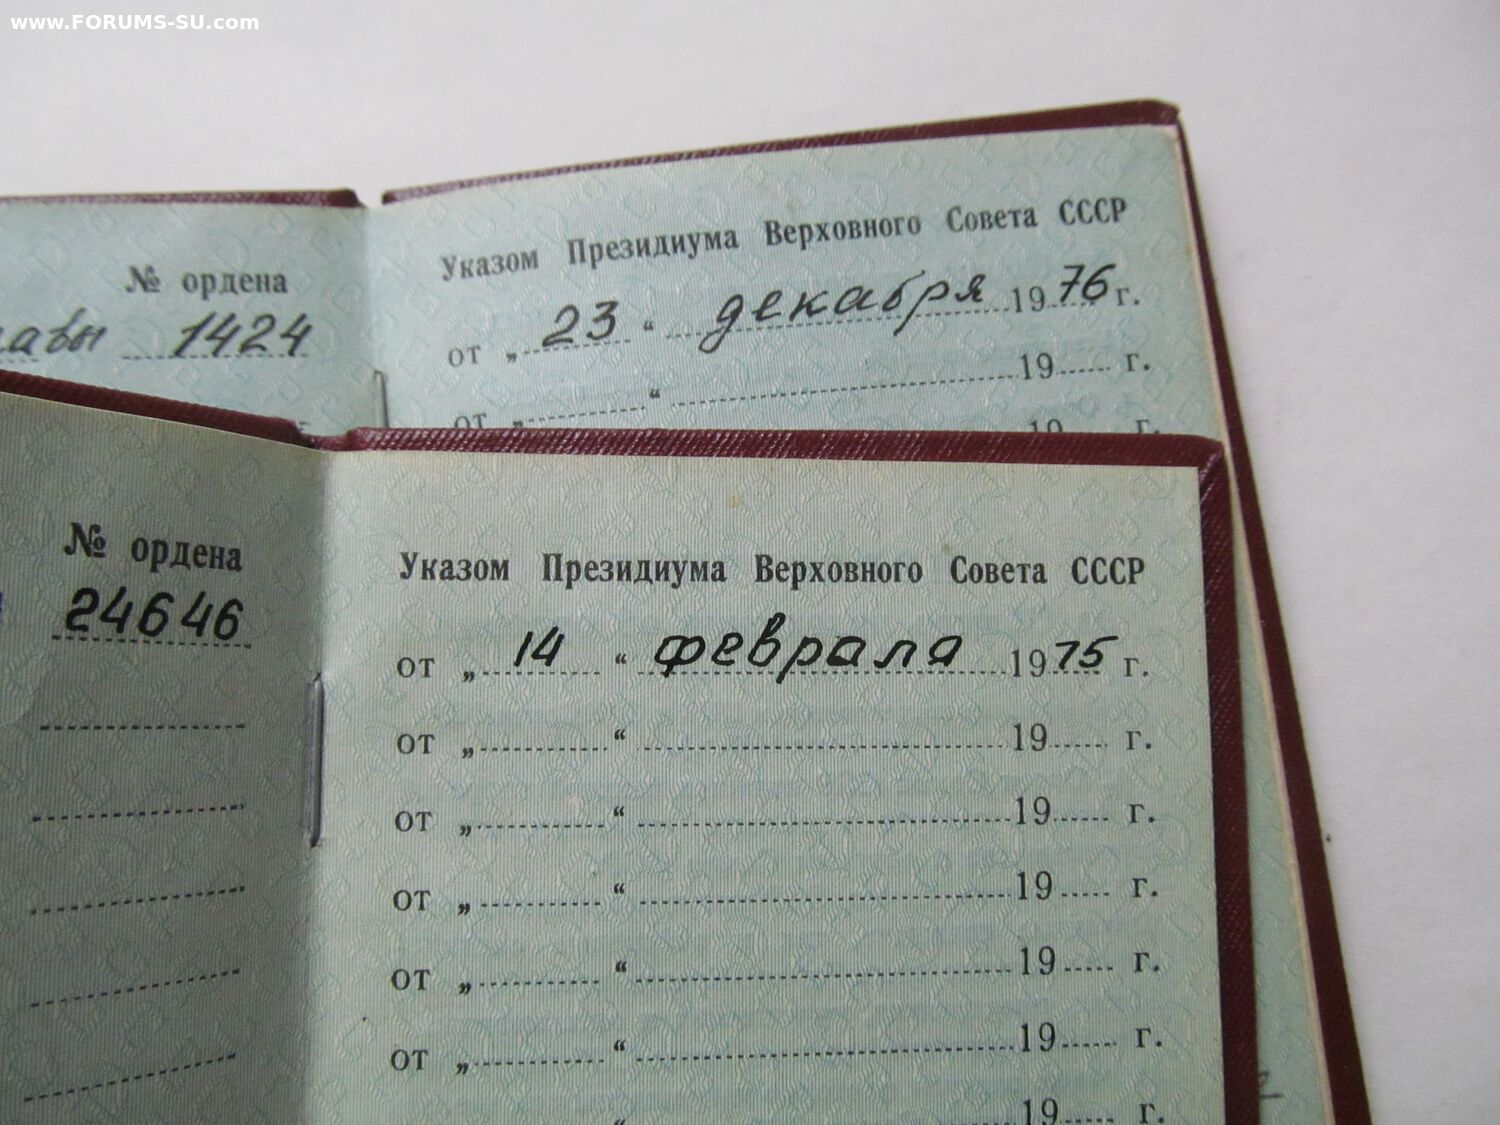 www.FORUMS-SU.com
№ ордена
1424
Указом Президиума Верховного Совета СССР
от „ 23 “ декабря 1976 г.
от „ “ 19 г.
19 г.
№ ордена
24646
Указом Президиума Верховного Совета СССР
от „ 14 “ февраля 1975 г.
от „ “ 19 г.
от „ “ 19 г.
от „ “ 19 г.
от „ “ 19 г.
от „ “ 19 г.
“ 19 г.